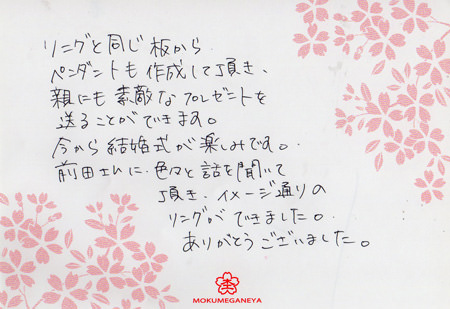 リングと同じ板から
ペンダントも作成して頂き、
親にも素敵なプレゼントを
送ることができます。
今から結婚式が楽しみです。
前田さんに、色々と話を聞いて
頂き、イメージ通りの
リングができました。
ありがとうございました。
MOKUMEGANEYA